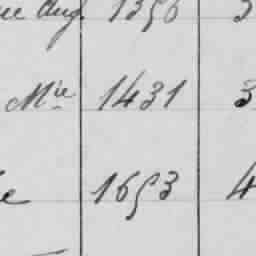 ue Aug. 1356 3
Mie 1431 3
e 1653 4